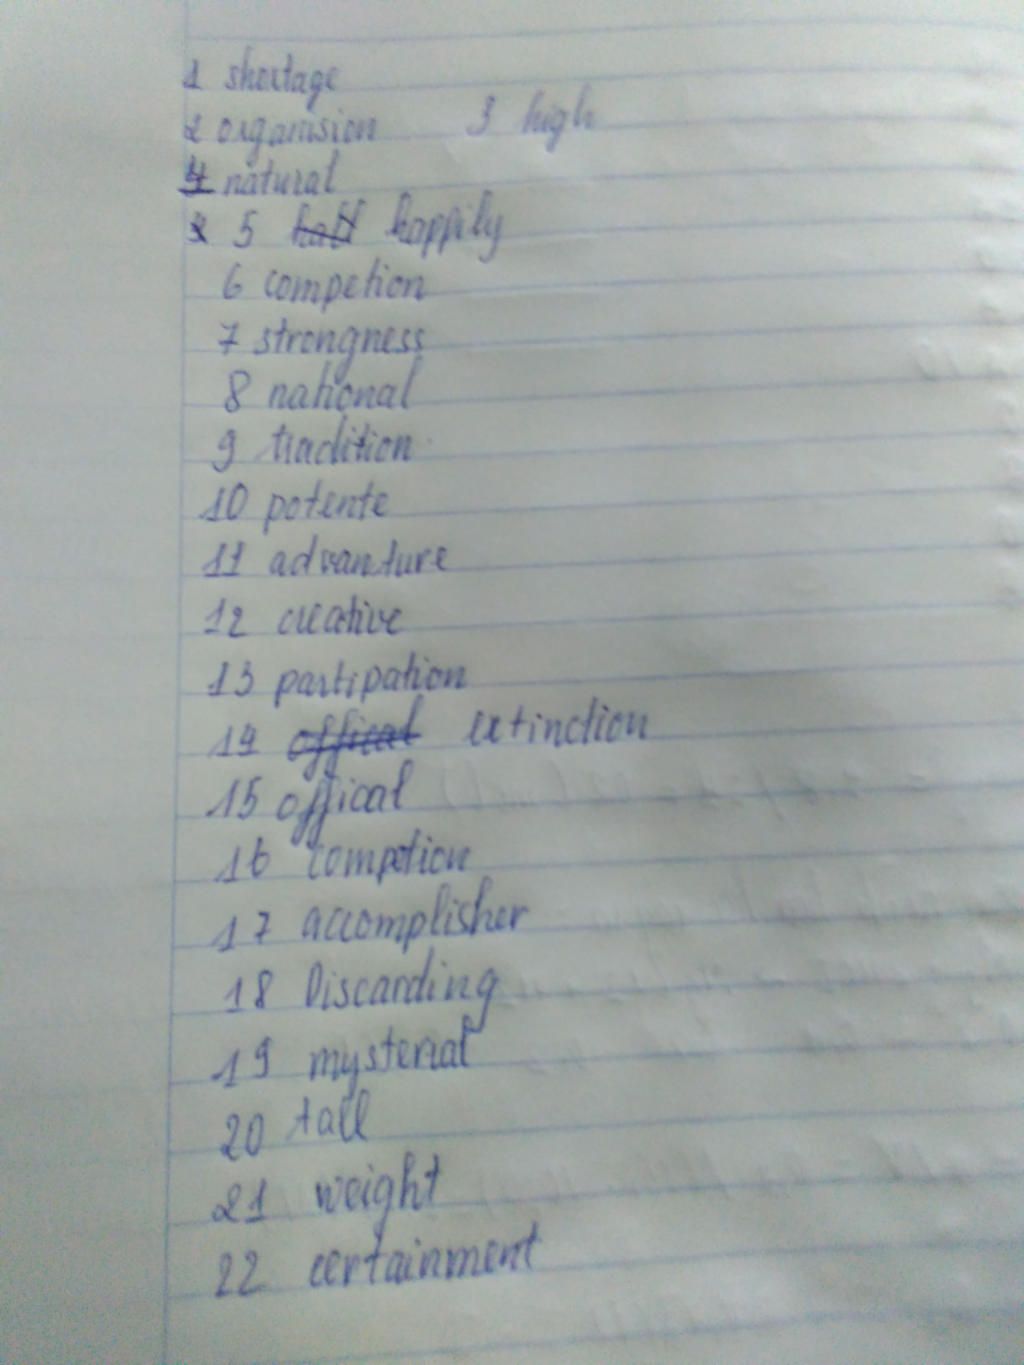 1 shortage
2 organision 3 high
4 natural
5 happily
6 competion
7 strongness
8 national
9 tradition
10 potente
11 advanture
12 creative
13 partipation
14 offical extinction
15 offical
16 competion
17 accomplisher
18 Discarding
19 mysterial
20 tall
21 weight
22 certainment